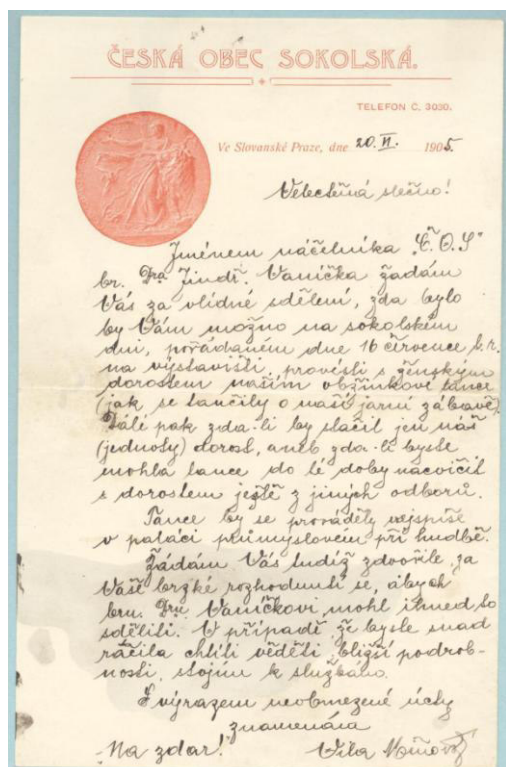 ČESKÁ OBEC SOKOLSKÁ.
TELEFON Č. 3030.
Ve Slovanské Praze, dne 20. VI. 1905.
Velectěná slečno!
Jménem náčelníka "Č.O.S"
br. Dra Jindř. Vaníčka žádám
Vás za vlídné sdělení, zda bylo
by Vám možno na sokolském
dni, pořádaném dne 16 července b.r.
na výstavišti, provésti s ženským
dorostem naším obžínkové tance
(jak se tančily o naší jarní zábavě).
Dále pak zda-li by stačil jen náš
(jednoty) dorost, aneb zda-li byste
mohla tance do té doby nacvičit
s dorostem ještě z jiných odborů.
Tance by se prováděly nejspíše
v paláci průmyslovém při hudbě.
Žádám Vás tudíž zdvořile, za
Vaše brzké rozhodnutí se, abych
bru. Dru Vaníčkovi mohl ihned to
sděliti. V případě, že byste snad
ráčila chtíti věděti bližší podrob-
nosti, stojím k službám.
S výrazem neobmezené úcty
znamenám
"Na zdar!"